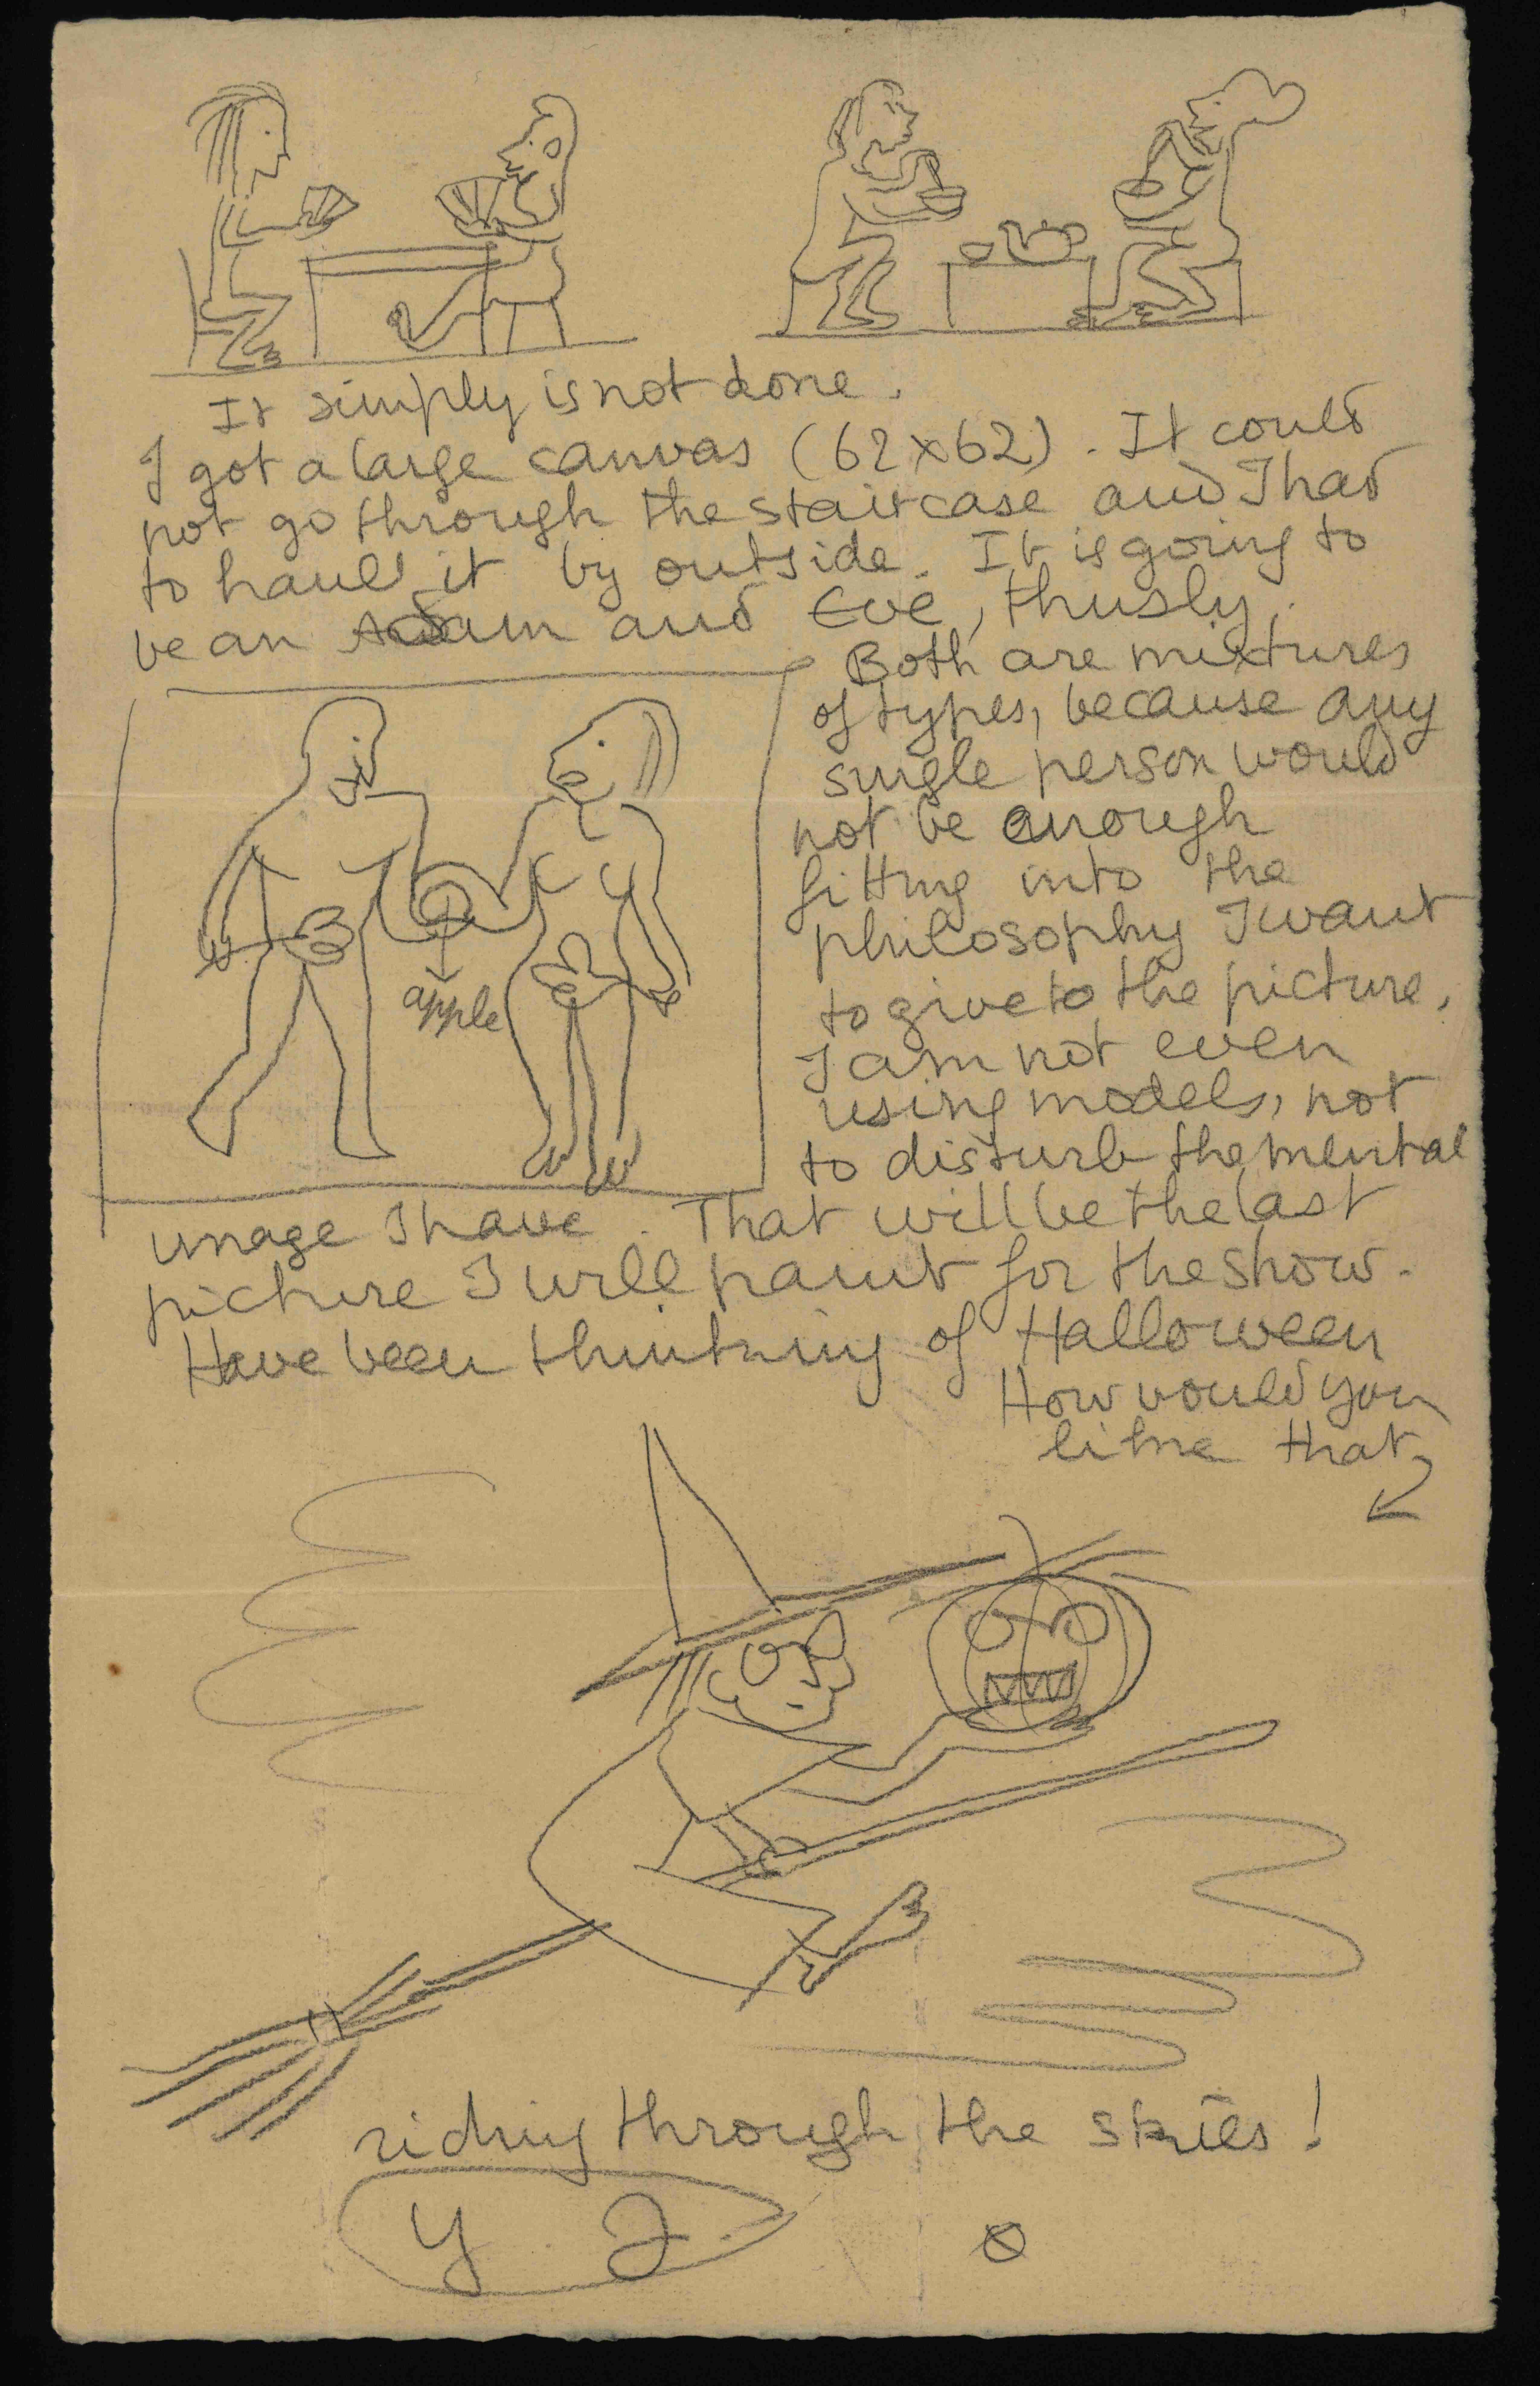 It simply is not done.
I got a large canvas (62x62). It could
not go through the staircase and I had
to haul it by outside. It is going to
be an Adam and Eve, thusly.
Both are mixtures
of types, because any
single person would
not be enough
fitting into the
philosophy I want
to give to the picture.
I am not even
using models, not
to disturb the mental
apple
image I have. That will be the last
picture I will paint for the show.
Have been thinking of Halloween
How would you
like that
riding through the skies!
Y J.